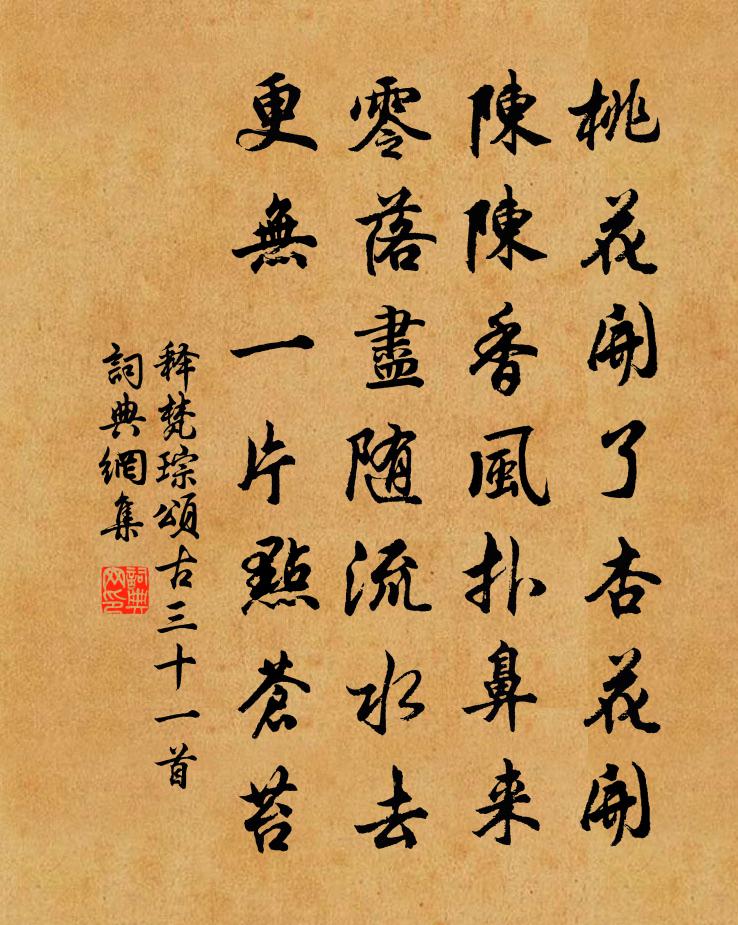 桃花開了杏花開
陳陳香風扑鼻来
零落盡随流水去
更無一片點蒼苔
释梵琮頌古三十一首
詞典網集
詞典网印